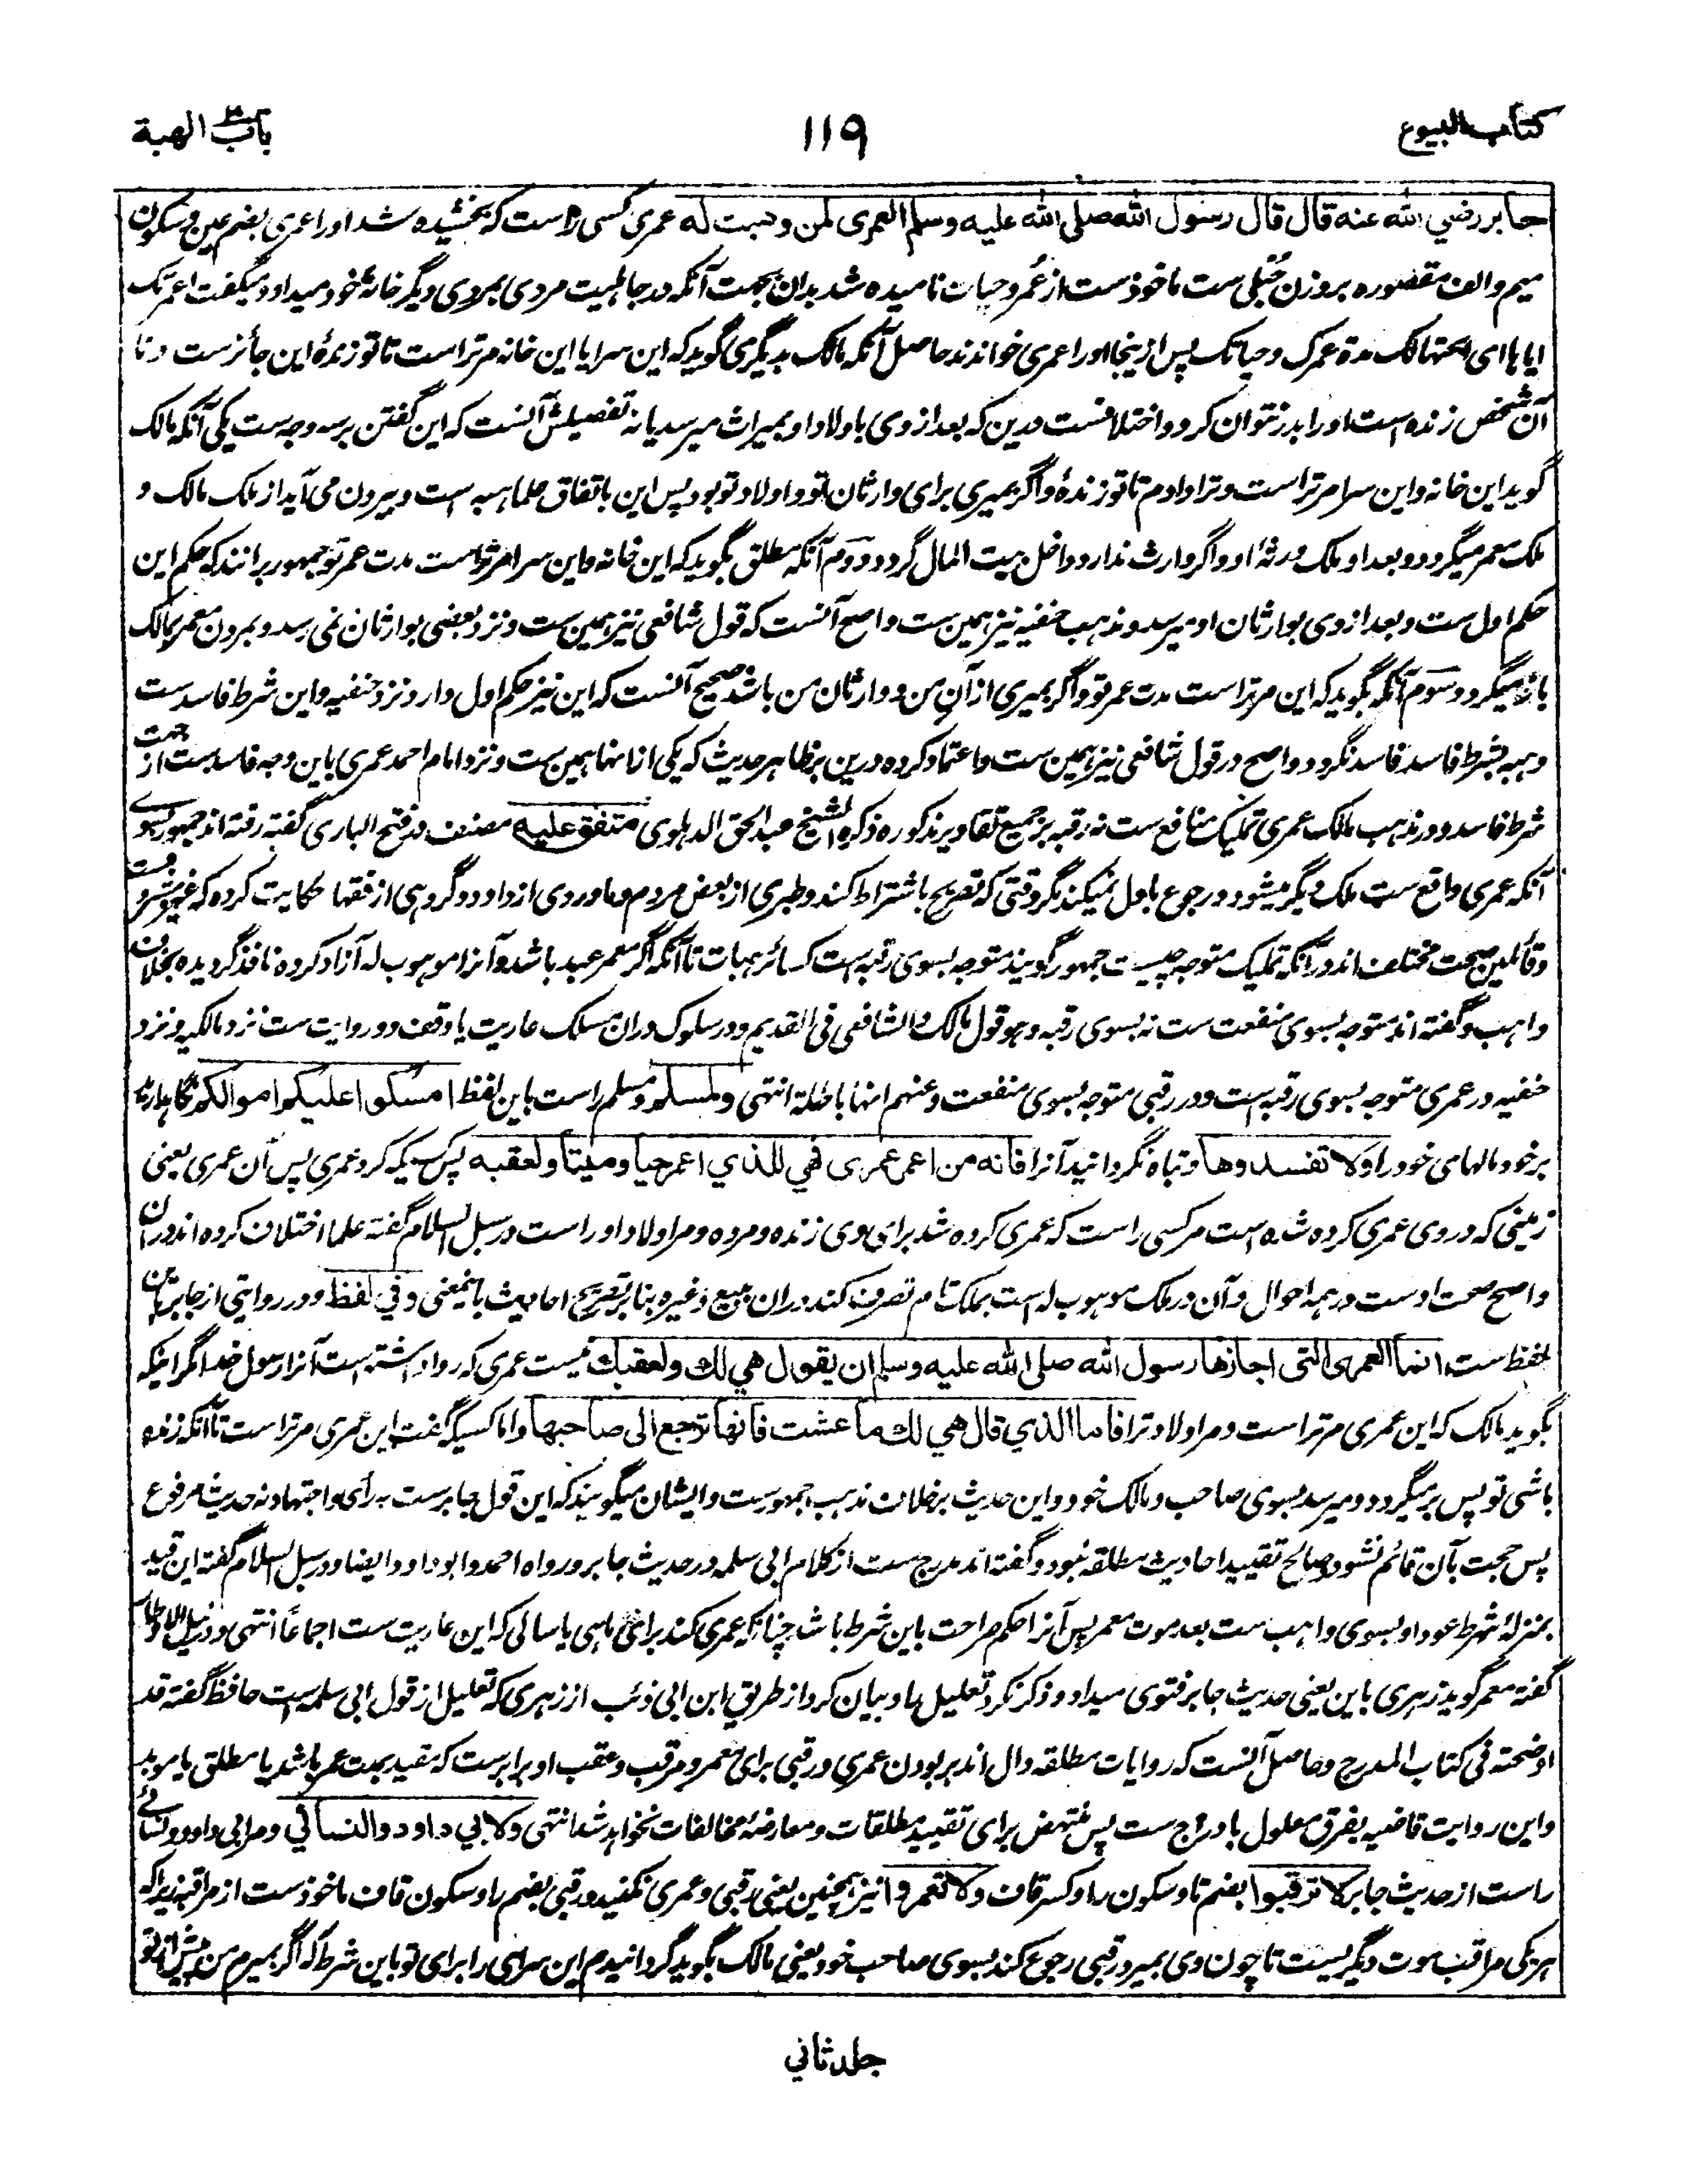 كتاب البيوع
١١٩
باب الهبة
جابر رضي الله عنه قال قال رسول الله صلى الله عليه وسلم العمرى لمن وهبت له عمرى کسی راست که بخشیده شد اورا عمری بضم عین و سکون
میم والف مقصوره بر وزن حُبلی ست ماخوذست از عُمر و حیات نامیده شد بدان بجهت آنکه در جاهلیت مردی بمردی دیگر خانهٔ خود میداد و میگفت اعمرتک
ایاها ای ابحتها لک مدة عمرک و حیاتک پس از ینجا اورا عمری خواندند حاصل آنکه مالک بدیگری گوید که این سرا یا این خانه مر تراست تا تو زندهٔ این جائزست و تا
آن شخص زنده است اورا بدر نتوان کرد و اختلافست درین که بعد از وی باولاد او بمیراث میرسد یا نه تفصیلش آنست که این گفتن بر سه وجه ست یکی آنکه مالک
گوید این خانه و این سرا مر تراست و ترا دادم تا تو زندهٔ و اگر بمیری برای وارثان تو و اولاد تو بود پس این باتفاق علما هبه است و بیرون می آید از ملک مالک و
ملک معمر میگردد و بعد او ملک ورثهٔ او و اگر وارث ندارد داخل بیت المال گردد دوم آنکه مطلق بگوید که این خانه و این سرا مر تراست مدت عمر تو جمهور برانند که حکم این
حکم اول ست و بعد از وی بوارثان او میرسد و مذهب حنفیه نیز همین ست و اصح آنست که قول شافعی نیز همین ست و نزد بعضی بوارثان نمی رسد و بمردن معمر بمالک
باز میگردد سوم آنکه بگوید که این مر تراست مدت عمر تو و اگر بمیری از آن من و وارثان من باشد صحیح آنست که این نیز حکم اول دارد نزد حنفیه و این شرط فاسدست
و هبه بشرط فاسد فاسد نگردد و اصح در قول شافعی نیز همین ست و اعتماد کرده درین بر ظاهر حدیث که یکی ازانها همین ست و نزد امام احمد عمری باین وجه فاسدست از جهت
شرط فاسد و در مذهب مالک عمری تملیک منافع ست نه رقبه بر جمیع تقادیر مذکوره ذکره الشیخ عبد الحق الدهلوی متفق عليه مصنف در فتح الباری گفته رفته اند جمهور بسوے
آنکه عمری واقع ست ملک دیگر میشود و رجوع باول نمیکند مگر وقتی که تصریح باشتراط کند و طبری از بعض مردم و ماوردی از داود و گروهی از فقها حکایت کرده که غیر مشروعست
و قائلین صحت مختلف اند در آنکه تملیک متوجه چیست جمهور گویند متوجه بسوی رقبه است کسائر هبات تا آنکه اگر معمر عبد باشد و آنرا موهوب له آزاد کرده نافذ گردیده بخلاف
واهب و گفته اند متوجه بسوی منفعت ست نه بسوی رقبه و هو قول مالک والشافعی فی القدیم و در سلوک دران مسلک عاریت یا وقف دو روایت ست نزد مالکیه و نزد
حنفیه در عمری متوجه بسوی رقبه است و در رقبی متوجه بسوی منفعت و عنهم انها باطلة انتهی ولمسلم و مسلم راست باین لفظ امسكوا عليكم اموالكم نگاهدارید
بر خود مالهای خود را ولا تفسدوها و تباه نگردانید آنرا فانه من اعمر عمرى فهي للذي اعمر حيا وميتا ولعقبه پس کسیکه کرد عمری پس آن عمری یعنی
زمینی که در وی عمری کرده شده است مر کسی راست که عمری کرده شد برای وی زنده و مرده و مر اولاد اوراست در سبل السلام گفته علما اختلاف کرده اند دران
و اصح صحت اوست در همه احوال و آن در ملک موهوب له است بملک تام تصرف کند دران ببیع و غیره بنا بر تصریح احادیث باینمعنی وفي لفظ و در روایتی از جابر باین
لفظ ست انما العمرى التى اجازها رسول الله صلى الله عليه وسلم ان يقول هي لك ولعقبك نیست عمری که روا داشته است آنرا رسول خدا مگر اینکه
بگوید مالک که این عمری مر تراست و مر اولاد ترا فاما الذي قال هي لك ما عشت فانها ترجع الى صاحبها و اما کسیکه گفت این عمری مر تراست تا آنکه زنده
باشی تو پس بر میگردد و میرسد بسوی صاحب و مالک خود و این حدیث بر خلاف مذهب جمهورست و ایشان میگویند که این قول جابرست به رای و اجتهاد نه حدیث مرفوع
پس حجت بآن قائم نشود و صالح تقیید احادیث مطلقه نبود و گفته اند مدرج ست از کلام ابی سلمه در حدیث جابر و رواه احمد و ابو داود ایضا و در سبل السلام گفته این قید
بمنزلهٔ شرط عود او بسوی واهب ست بعد موت معمر پس آنرا حکم صراحت باین شرط باشد چنانکه عمری کند برای ماهی یا سالی که این عاریت ست اجماعاً انتهی و در نیل الاوطار
گفته معمر گوید زهری باین یعنی حدیث جابر فتوی میداد و ذکر نکرد تعلیل را و بیان کرد از طریق ابن ابی ذئب از زهری که تعلیل از قول ابی سلمه است حافظ گفته قد
اوضحته فی کتاب المدرج و حاصل آنست که روایات مطلقه دال اند بر بودن عمری و رقبی برای معمر و مرقب و عقب او برابرست که مقید بمدت عمر باشد یا مطلق یا موبد
و این روایت قاضیه بفرق معلول بادراج ست پس منتهض برای تقیید مطلقات و معارضهٔ مخالفات نخواهد شد انتهی ولابي داود والنسائي و مر ابی داود و نسائے
راست از حدیث جابر لا ترقبوا بضم تا و سکون را و کسر قاف ولا تعمروا نیز همچنین یعنی رقبی و عمری نکنید و رقبی بضم را و سکون قاف ماخوذست از مراقبه زیراکه
هر یکی مراقب موت دیگریست تا چون وی بمیرد رقبی رجوع کند بسوی صاحب خود یعنی مالک بگوید گردانیدم این سرای را برای تو باین شرط که اگر بمیرم من پیش از تو
جلد ثاني